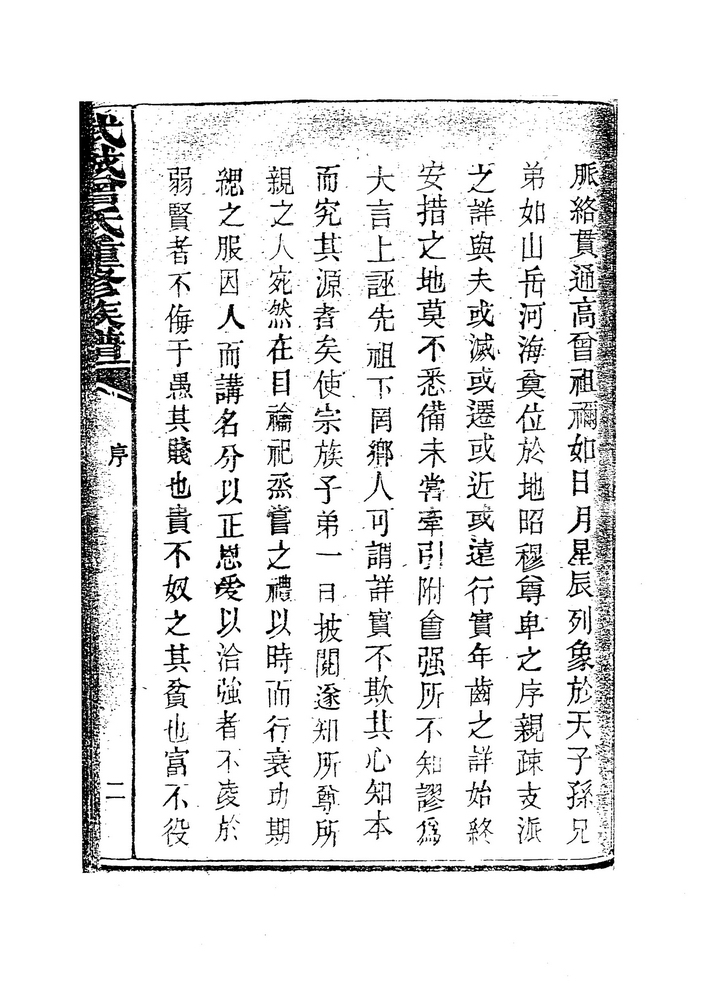 脈絡貫通高曾祖禰如日月星辰列象於天子孫兄
弟如山岳河海奠位於地昭穆尊卑之序親疎支派
之詳與夫或滅或遷或近或遠行實年齒之詳始終
安措之地莫不悉備未嘗牽引附會强所不知謬爲
大言上誣先祖下罔鄉人可謂詳實不欺其心知本
而究其源者矣使宗族子弟一日披閱遂知所尊所
親之人宛然在目禴祀烝嘗之禮以時而行衰功期
緦之服因人而講名分以正恩愛以洽強者不凌於
弱賢者不侮于愚其賤也貴不奴之其貧也富不役
武城曾氏重修族譜
序
二